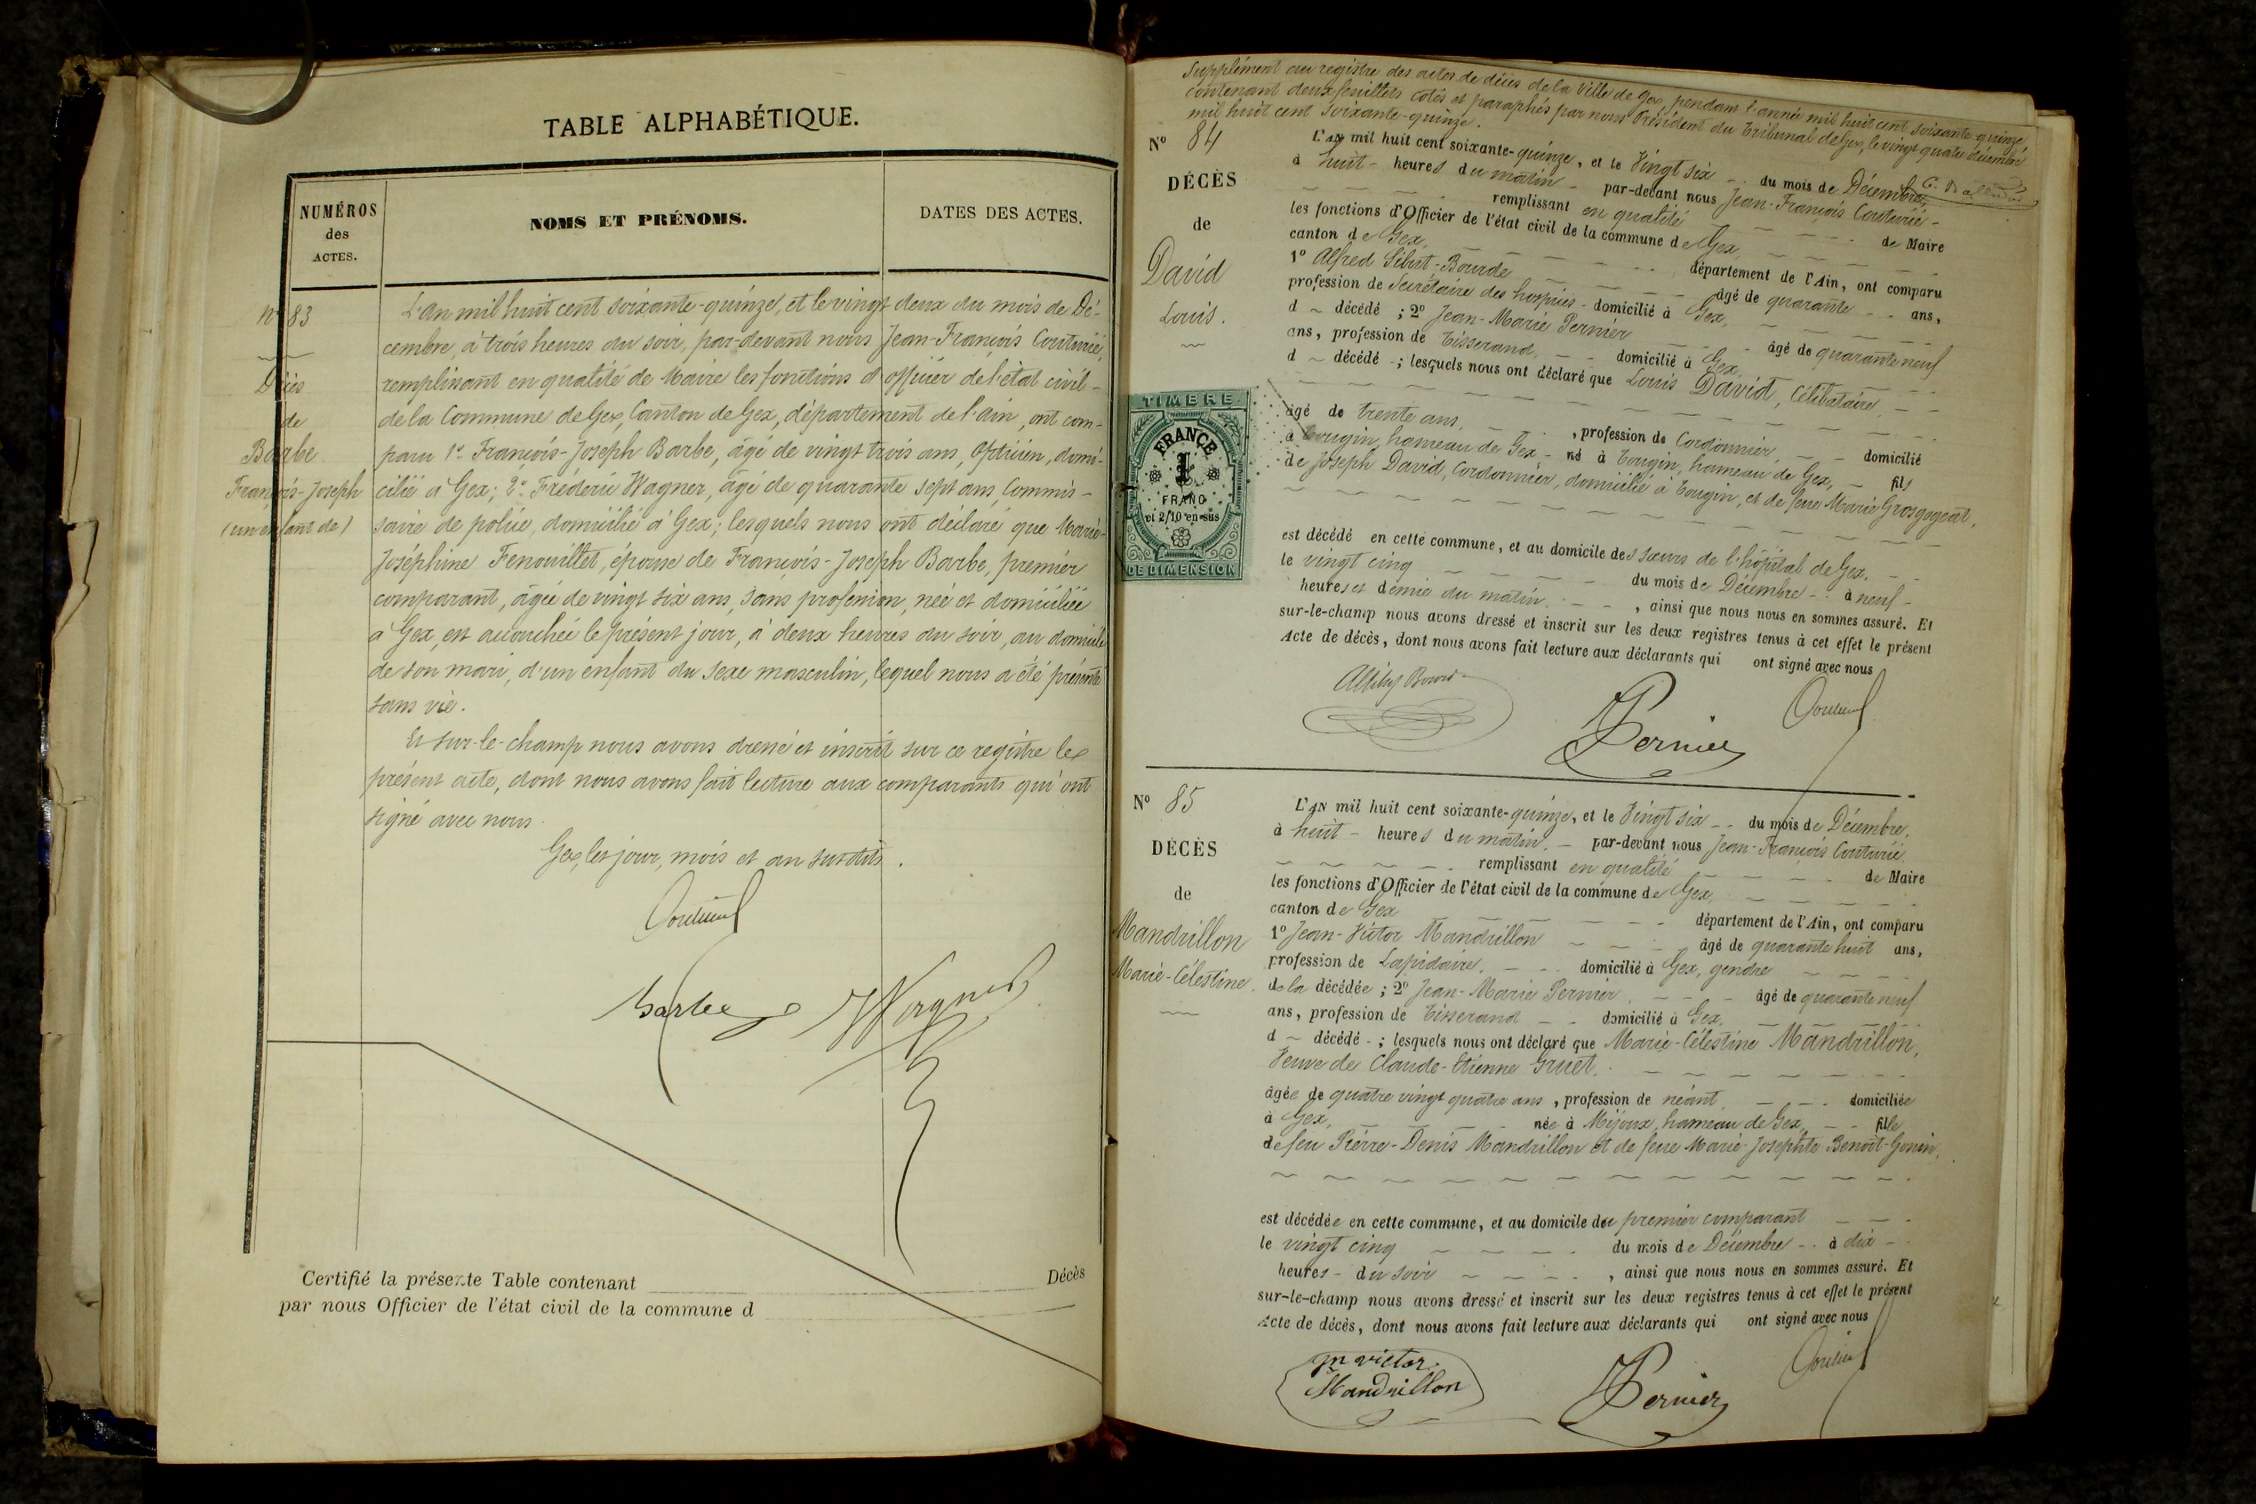 TABLE ALPHABÉTIQUE.
NUMÉROS
des
ACTES.
NOMS ET PRÉNOMS.
DATES DES ACTES.
No 83
Décès
de
Barbe
François-Joseph
(un enfant de)
L'an mil huit cent soixante-quinze, et le vingt deux du mois de Dé-
cembre, à trois heures du soir, par-devant nous Jean-François Couturier,
remplissant en qualité de Maire les fonctions d'officier de l'état civil-
de la Commune de Gex, Canton de Gex, département de l'ain, ont com-
paru 1o François-Joseph Barbe, âgé de vingt trois ans, Opticien, domi-
cilié à Gex; 2o Fréderic Wagner, âgé de quarante sept ans, Commis-
saire de police, domicilié à Gex; lesquels nous ont déclaré que Marie-
Joséphine Fenouillet, épouse de François-Joseph Barbe, premier
comparant, âgée de vingt six ans, sans profession, née et domiciliée
à Gex, est accouchée le présent jour, à deux heures du soir, au domicile
de son mari, d'un enfant du sexe masculin, lequel nous a été présenté
sans vie.
Et sur-le-champ nous avons dressé et inscrit sur ce registre le
présent acte, dont nous avons fait lecture aux comparants qui ont
signé avec nous.
Gex, les jour, mois et an susdits.
Barbe Wagner
Certifié la présente Table contenant Décès
par nous Officier de l'état civil de la commune d
Supplément au registre des actes de décès de la Ville de Gex, pendant l'année mil huit cent soixante-quinze,
contenant deux feuillets cotés et paraphés par nous Président du Tribunal de Gex, le vingt quatre décembre
mil huit cent soixante-quinze.
No 84
DÉCÈS
de
David
Louis.
L'AN mil huit cent soixante-quinze, et le Vingt six du mois de Décembre,
à huit heures du matin par-devant nous Jean-François Couturier
remplissant en qualité de Maire
les fonctions d'Officier de l'état civil de la commune de Gex,
canton de Gex, département de l'Ain, ont comparu
1o Alfred Sibut-Bourde âgé de quarante ans,
profession de Secrétaire des hospices domicilié à Gex,
d décédé ; 2o Jean-Marie Pernier âgé de quarante neuf
ans, profession de Tisserand, domicilié à Gex,
d décédé ; lesquels nous ont déclaré que Louis David, Célibataire
âgé de trente ans, , profession de Cordonnier, domicilié
à Tougin, hameau de Gex né à Tougin, hameau de Gex, fils
de Joseph David, Cordonnier, domicilié à Tougin, et de feue Marie Grosgogeat,
est décédé en cette commune, et au domicile des sœurs de l'hôpital de Gex,
le vingt cinq du mois de Décembre à neuf
heures et demie du matin , ainsi que nous nous en sommes assuré. Et
sur-le-champ nous avons dressé et inscrit sur les deux registres tenus à cet effet le présent
Acte de décès, dont nous avons fait lecture aux déclarants qui ont signé avec nous
Pernier
TIMBRE
FRANCE
1
FRANC
et 2/10 en sus
DE DIMENSION
No 85
DÉCÈS
de
Mandrillon
Marie-Célestine.
L'AN mil huit cent soixante-quinze, et le Vingt six du mois de Décembre,
à huit heures du matin, par-devant nous Jean-François Couturier
remplissant en qualité de Maire
les fonctions d'Officier de l'état civil de la commune de Gex,
canton de Gex département de l'Ain, ont comparu
1o Jean-Victor Mandrillon âgé de quarante huit ans,
profession de Lapidaire, domicilié à Gex, gendre
de la décédée ; 2o Jean-Marie Pernier âgé de quarante neuf
ans, profession de Tisserand domicilié à Gex,
d décédé ; lesquels nous ont déclaré que Marie-Célestine Mandrillon,
Veuve de Claude-Etienne Gruet,
âgée de quatre vingt quatre ans, profession de néant, domiciliée
à Gex, née à Mijoux, hameau de Gex, fille
de feu Pierre-Denis Mandrillon et de feue Marie-Josephte Benoit-Gonin,
est décédée en cette commune, et au domicile du premier comparant
le vingt cinq du mois de Décembre à dix
heures du soir , ainsi que nous nous en sommes assuré. Et
sur-le-champ nous avons dressé et inscrit sur les deux registres tenus à cet effet le présent
Acte de décès, dont nous avons fait lecture aux déclarants qui ont signé avec nous
Jn victor
Mandrillon
Pernier